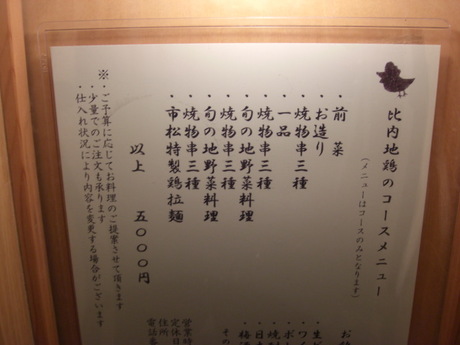 比内地鶏のコースメニュー
(メニューはコースのみとなります)
・前菜
・お造り
・焼物串三種
・一品
・焼物串三種
・旬の地野菜料理
・焼物串三種
・旬の地野菜料理
・焼物串三種
市松特製鶏拉麺
以上 五〇〇〇円
※・ご予算に応じてお料理のご提案させて頂きます
・少量でのご注文も承ります
・仕入れ状況により内容を変更する場合がございます
お
・生ビ
・ワイ
・ボ
・焼
・日本
・梅酒
その
営業時
定休日
住所
電話番